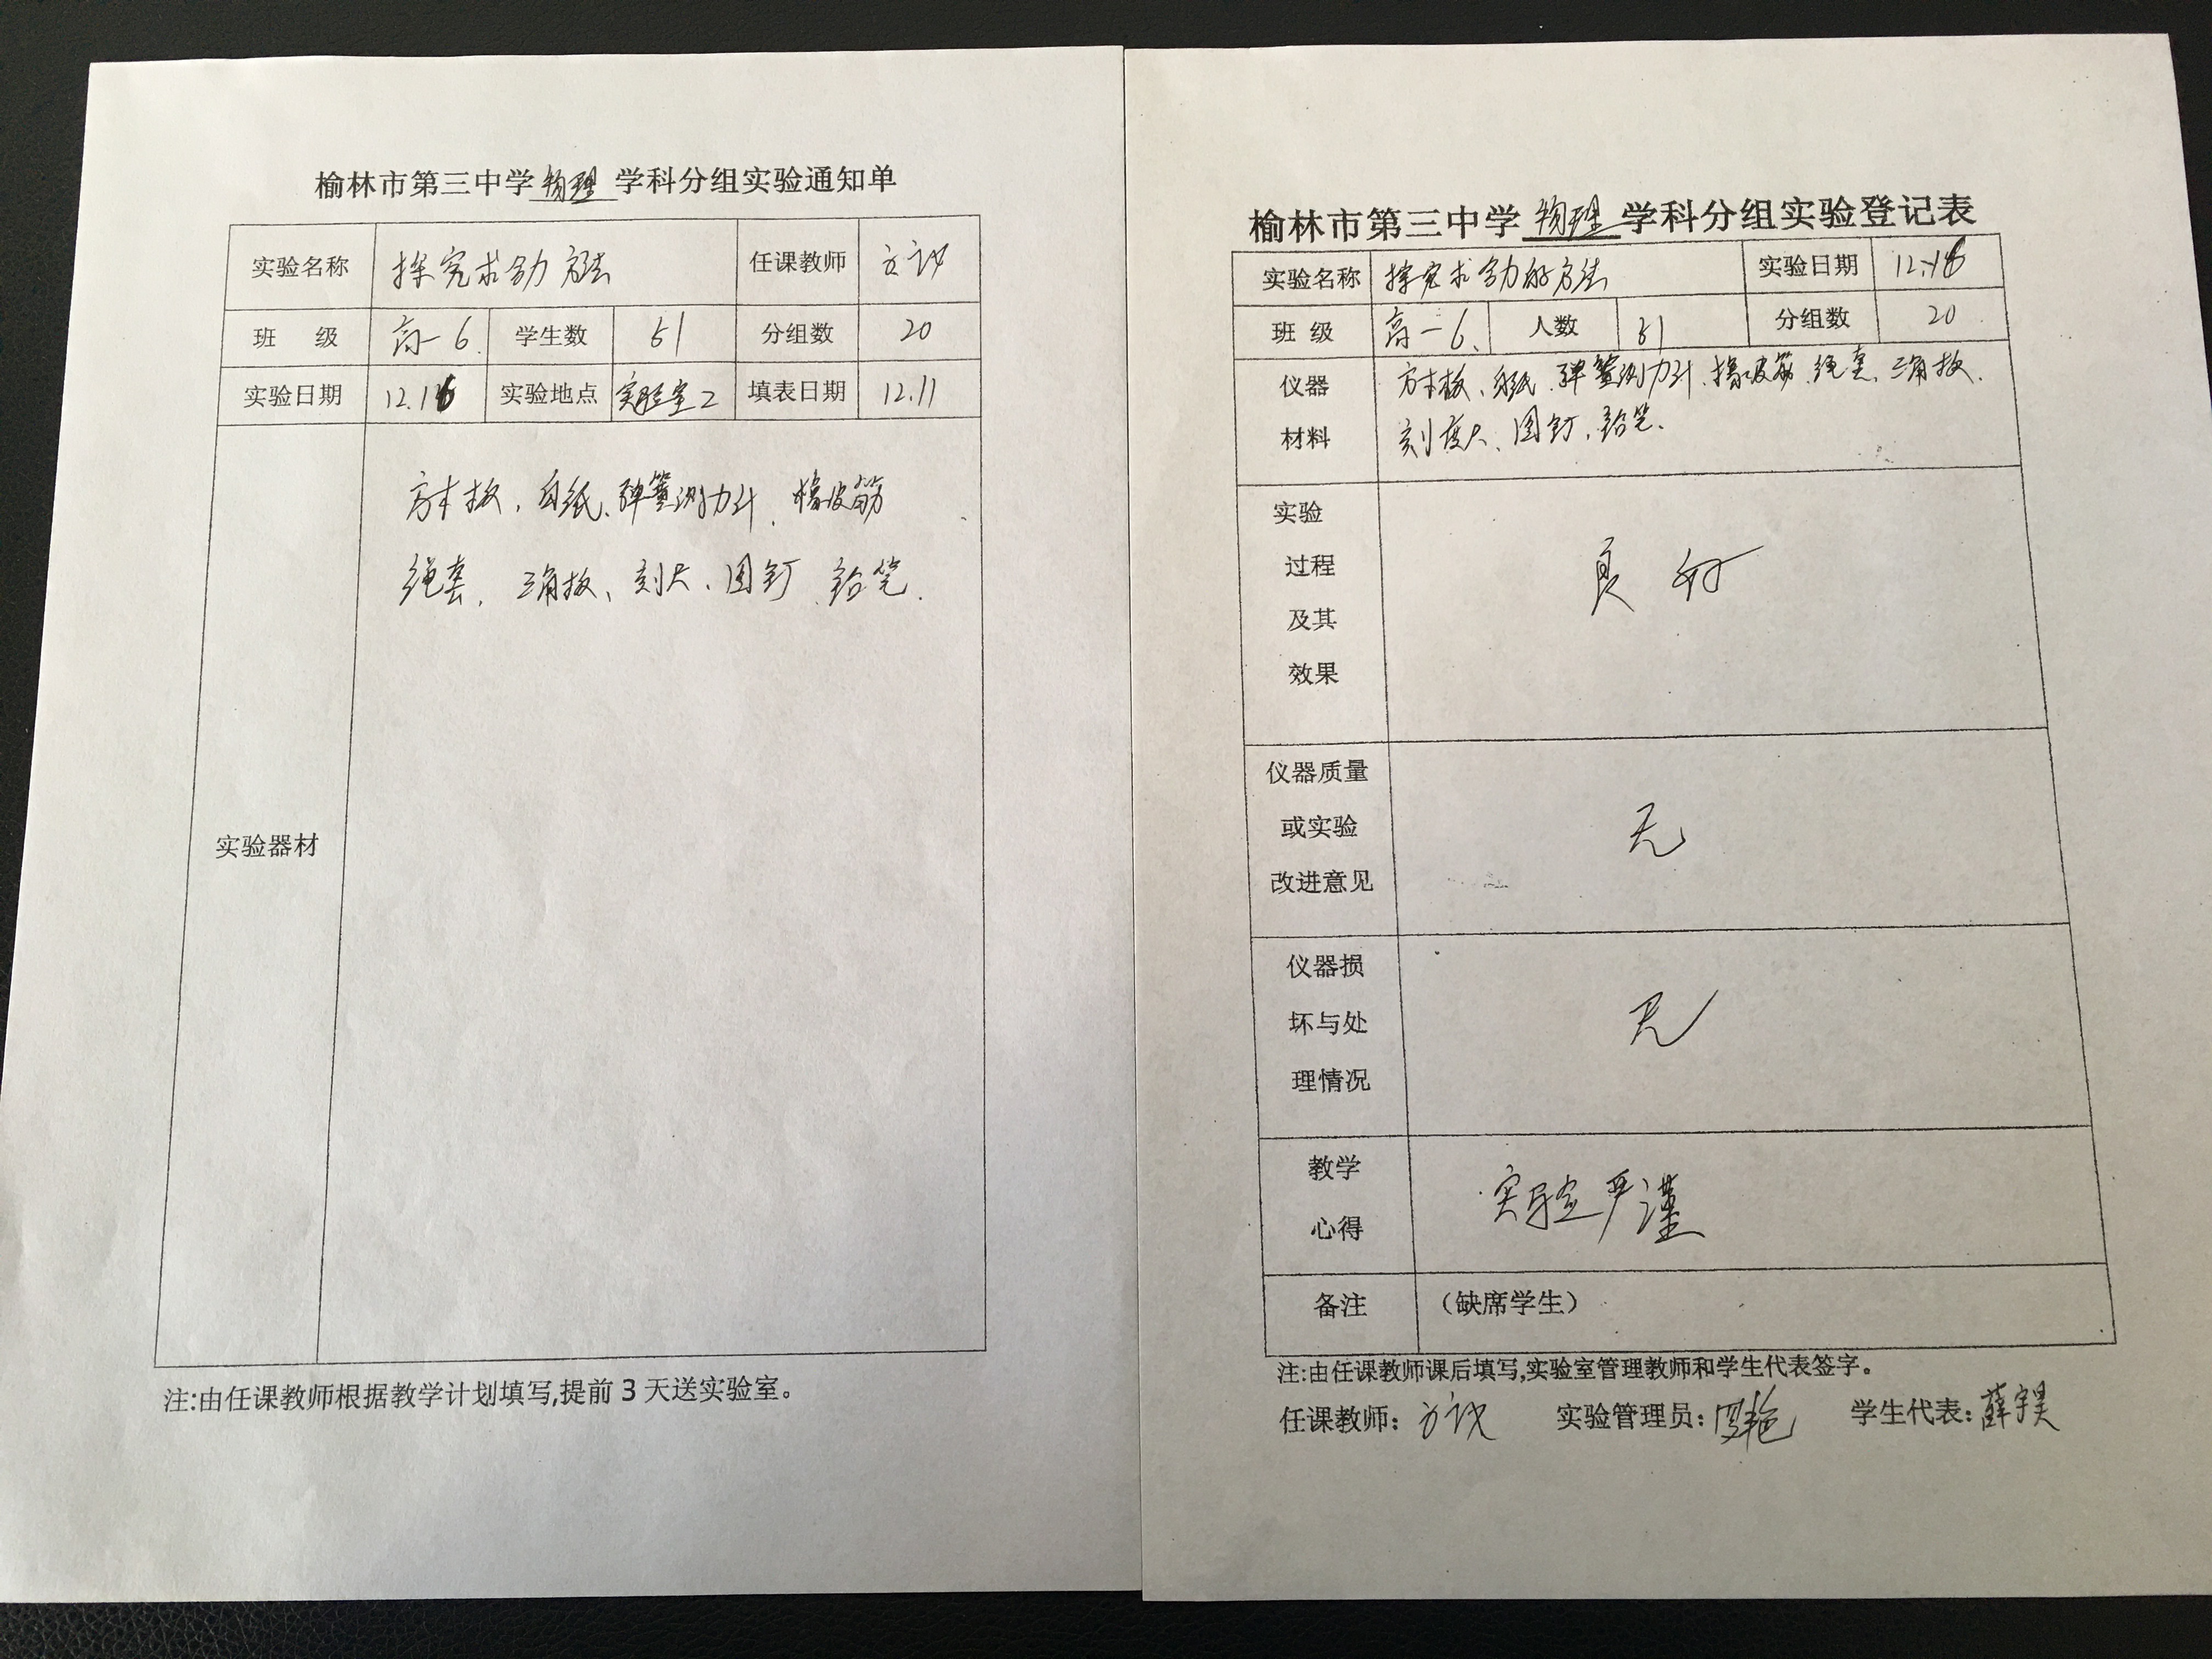 榆林市第三中学物理学科分组实验通知单
实验名称 探究求合力方法 任课教师
班 级 高一6. 学生数 51 分组数 20
实验日期 12.16 实验地点 实验室2 填表日期 12.11
方木板、白纸、弹簧测力计、橡皮筋
绳套、三角板、刻尺、图钉、铅笔.
实验器材
注:由任课教师根据教学计划填写,提前3天送实验室。
榆林市第三中学物理学科分组实验登记表
实验名称 探究求合力的方法 实验日期 12.16
班 级 高一6、 人数 51 分组数 20
仪器 方木板、白纸、弹簧测力计、橡皮筋、绳套、三角板、
材料 刻度尺、图钉、铅笔、
实验
过程
及其
效果
良好
仪器质量
或实验
改进意见
无
仪器损
坏与处
理情况
无
教学
心得
实验严谨
备注 (缺席学生)
注:由任课教师课后填写,实验室管理教师和学生代表签字。
任课教师: 实验管理员:罗艳 学生代表:薛宇昊